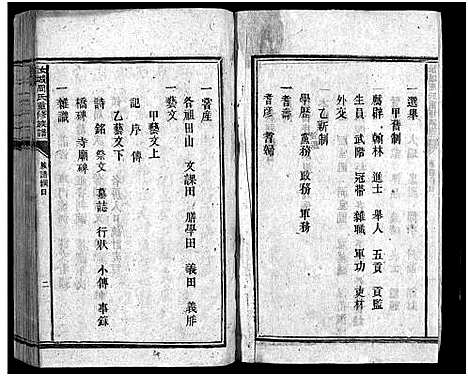 一選舉
甲舊制
薦辟 翰林 進士 舉人 五貢 貢監
生員 武階 冠帶 雜職 軍功 吏材
外交
乙新制
學歷 黨務 政務 軍務
一耆壽
耆彥 耆婦
一嘗產
各祖田山 文課田 膳學田 義田 義
一藝文
甲藝文上
記 序 傳
乙藝文下
詩 銘 祭文 墓誌 行狀 小傳 事錄
橋碑 寺廟碑
一雜識
氏重修族譜
族譜綱目
二